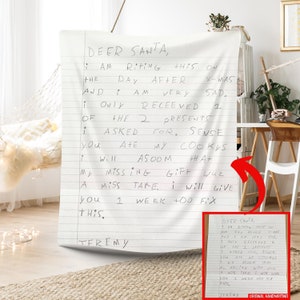 DEER SANTA,
I AM RITING THIS ON
THE DAY AFTER X-MAS
AND I AM VERY SAD.
I ONLY RECEEVED 1
OF THE 2 PRESENTS
I ASKED FOR. SENCE
YOU ATE MY COOKYS
I WILL ASOOM THAT
MY MISSING GIFT WAS
A MISS TAKE. I WILL GIVE
YOU 1 WEEK TOO FIX
THIS.
JEREMY
DEER SANTA,
ORIGINAL HANDWRITING